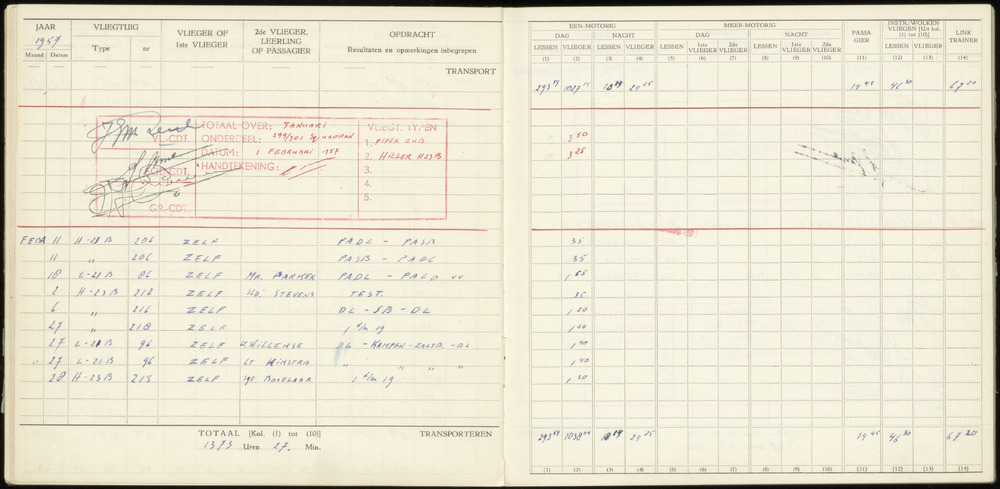 JAAR VLIEGTUIG VLIEGER OF 1ste VLIEGER 2de VLIEGER, LEERLING OF PASSAGIER OPDRACHT Resultaten en opmerkingen inbegrepen
1957
Maand Datum Type nr
TRANSPORT
VL.CDT. TOTAAL OVER: JANUARI VLIEGT. TYPEN
ONDERDEEL: 299/301 SQUADRON 1. PIPER CUB
DATUM: 1 FEBRUARI 1957 2. HILLER H23B
HANDTEKENING: 3.
4.
GR-CDT. 5.
11 H-23B 206 ZELF PADL - PASB
11 " 206 ZELF PASB - PADL
18 L-21B 86 ZELF MR. BARKER PADL - PALO VV
2 H-23B 212 ZELF STEVENS TEST.
6 " 216 ZELF DL - SB - DL
27 " 218 ZELF 1 t/m 19
27 L-21B 96 ZELF WILLEMSE DL - KAMPEN - ZALTB. - DL
" 27 L-21B 96 ZELF LT WINSTRA " " " "
28 H-23B 215 ZELF BOSELAAR 1 t/m 19
TOTAAL [Kol. (1) tot (10)] TRANSPORTEREN
1373 Uren 27 Min.
EEN-MOTORIG MEER-MOTORIG PASSAGIER INSTR./WOLKEN VLIEGEN [Uit kol. (1) tot (10)] LINK TRAINER
DAG NACHT DAG NACHT
LESSEN VLIEGER LESSEN VLIEGER LESSEN 1ste VLIEGER 2de VLIEGER LESSEN 1ste VLIEGER 2de VLIEGER LESSEN VLIEGER
(1) (2) (3) (4) (5) (6) (7) (8) (9) (10) (11) (12) (13) (14)
29 25 19 45 46 30 67 20
3 50
3 25
35
35
1 55
35
1 20
1 00
1 40
1 40
1 30
29 25 19 45 46 30 67 20
(1) (2) (3) (4) (5) (6) (7) (8) (9) (10) (11) (12) (13) (14)